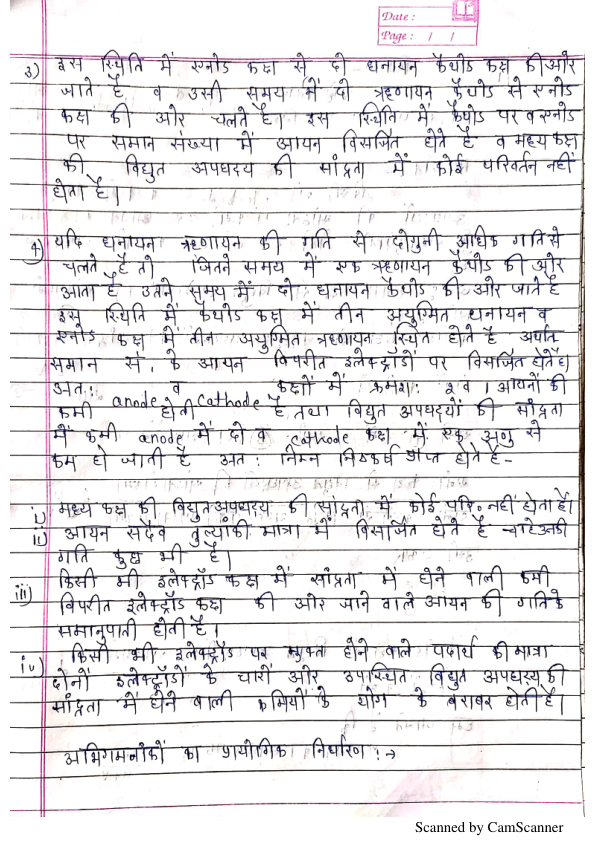 Date :
Page : / /
3) इस स्थिति में एनोड कक्ष से दो धनायन कैथोड कक्ष की ओर
जाते है व उसी समय में दो ऋणायन कैथोड से एनोड
कक्ष की ओर चलते है। इस स्थिति में कैथोड पर व एनोड
पर समान संख्या में आयन विसर्जित होते है व मध्य कक्ष
की विद्युत अपघट्य की सांद्रता में कोई परिवर्तन नहीं
होता है।
4) यदि धनायन ऋणायन की गति से दोगुनी अधिक गति से
चलते है तो जितने समय में एक ऋणायन कैथोड की ओर
आता है उतने समय में दो धनायन कैथोड की ओर जाते है
इस स्थिति में कैथोड कक्ष में तीन अयुग्मित धनायन व
एनोड कक्ष में तीन अयुग्मित ऋणायन स्थित होते है अर्थात
समान सं. के आयन विपरीत इलेक्ट्रॉडों पर विसर्जित होते है।
अत: anode व cathode कक्षों में क्रमश: 2 व 1 आयनों की
कमी होती है तथा विद्युत अपघट्यों की सांद्रता
में कमी anode में दो व cathode कक्ष में एक अणु से
कम हो जाती है अत: निम्न निष्कर्ष प्राप्त होते है-
i) मध्य कक्ष की विद्युत अपघट्य की सांद्रता में कोई परि. नहीं होता है।
ii) आयन सदैव तुल्यांकी मात्रा में विसर्जित होते है चाहे उनकी
गति कुछ भी है।
iii) किसी भी इलेक्ट्रॉड कक्ष में सांद्रता में होने वाली कमी
विपरीत इलेक्ट्रॉड कक्ष की ओर जाने वाले आयन की गति के
समानुपाती होती है।
iv) किसी भी इलेक्ट्रॉड पर मुक्त होने वाले पदार्थ की मात्रा
दोनों इलेक्ट्रॉडों के चारों ओर उपस्थित विद्युत अपघट्य की
सांद्रता में होने वाली कमियों के योग के बराबर होती है।
अभिगमनांकों का प्रायोगिक निर्धारण :→
Scanned by CamScanner